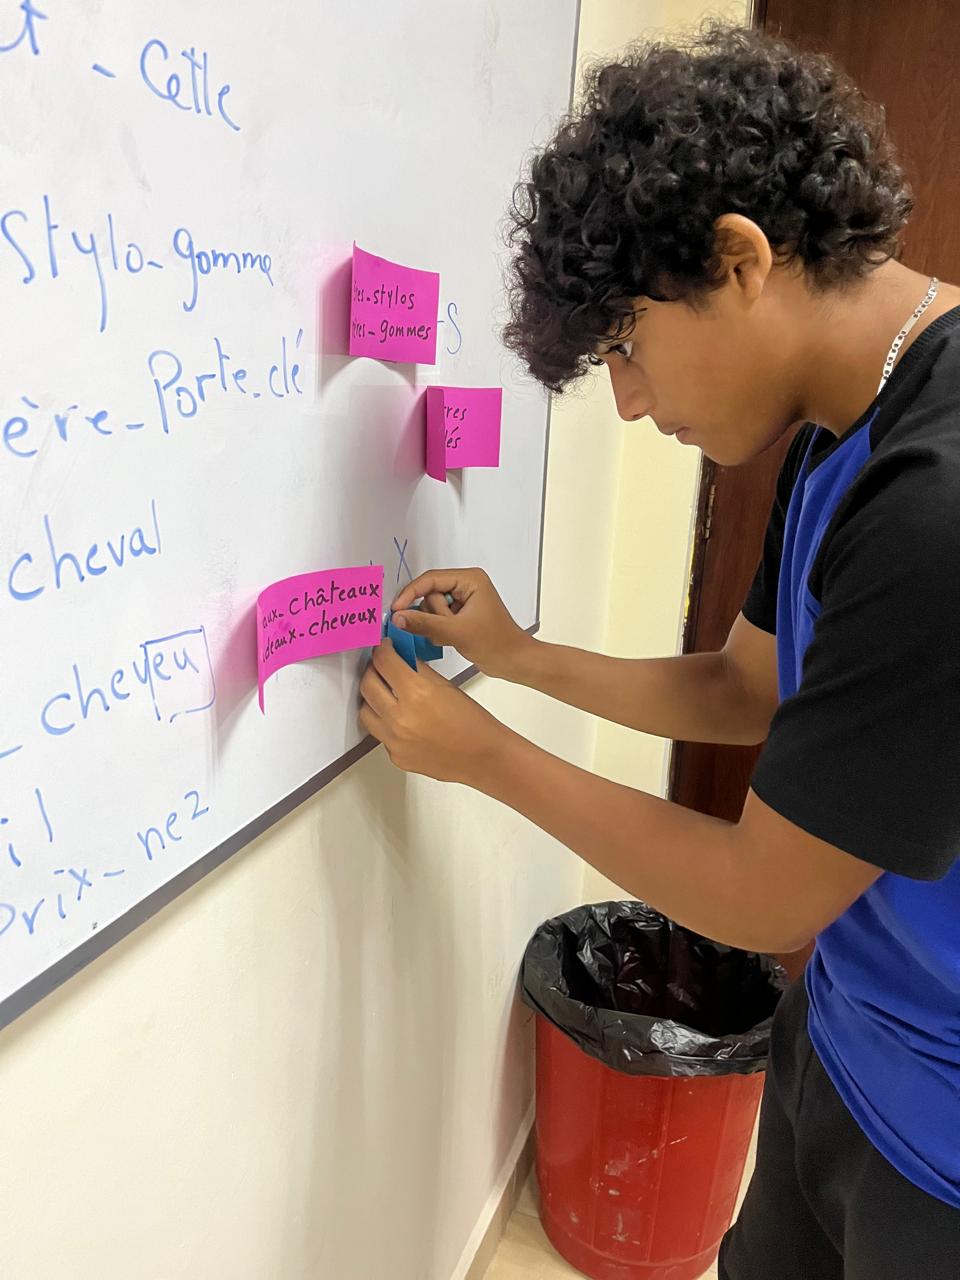 - Cette
stylo - gomme
res - stylos
res - gommes
-s
ère - Porte-clé
res
lés
cheval
x
aux - châteaux
ideaux - cheveux
- cheveu
il
Prix - nez